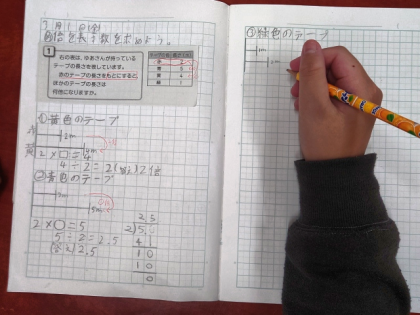 7月1日
倍を表す数を求めよう。
1
右の表は、ゆあさんが持っている
テープの長さを表しています。
赤のテープの長さをもとにすると、
ほかのテープの長さは
何倍になりますか。
テープの長さ(m)
赤 2
青 5
黄 4
緑 1
①黄色のテープ
赤 2m
黄 4m
2×□=4
4÷2=2 2倍
②青色のテープ
2m
5m
2×○=5
5÷2=2.5
答え 2.5
2.5
2)5.
4
10
10
0
③緑色のテープ
1m
2m